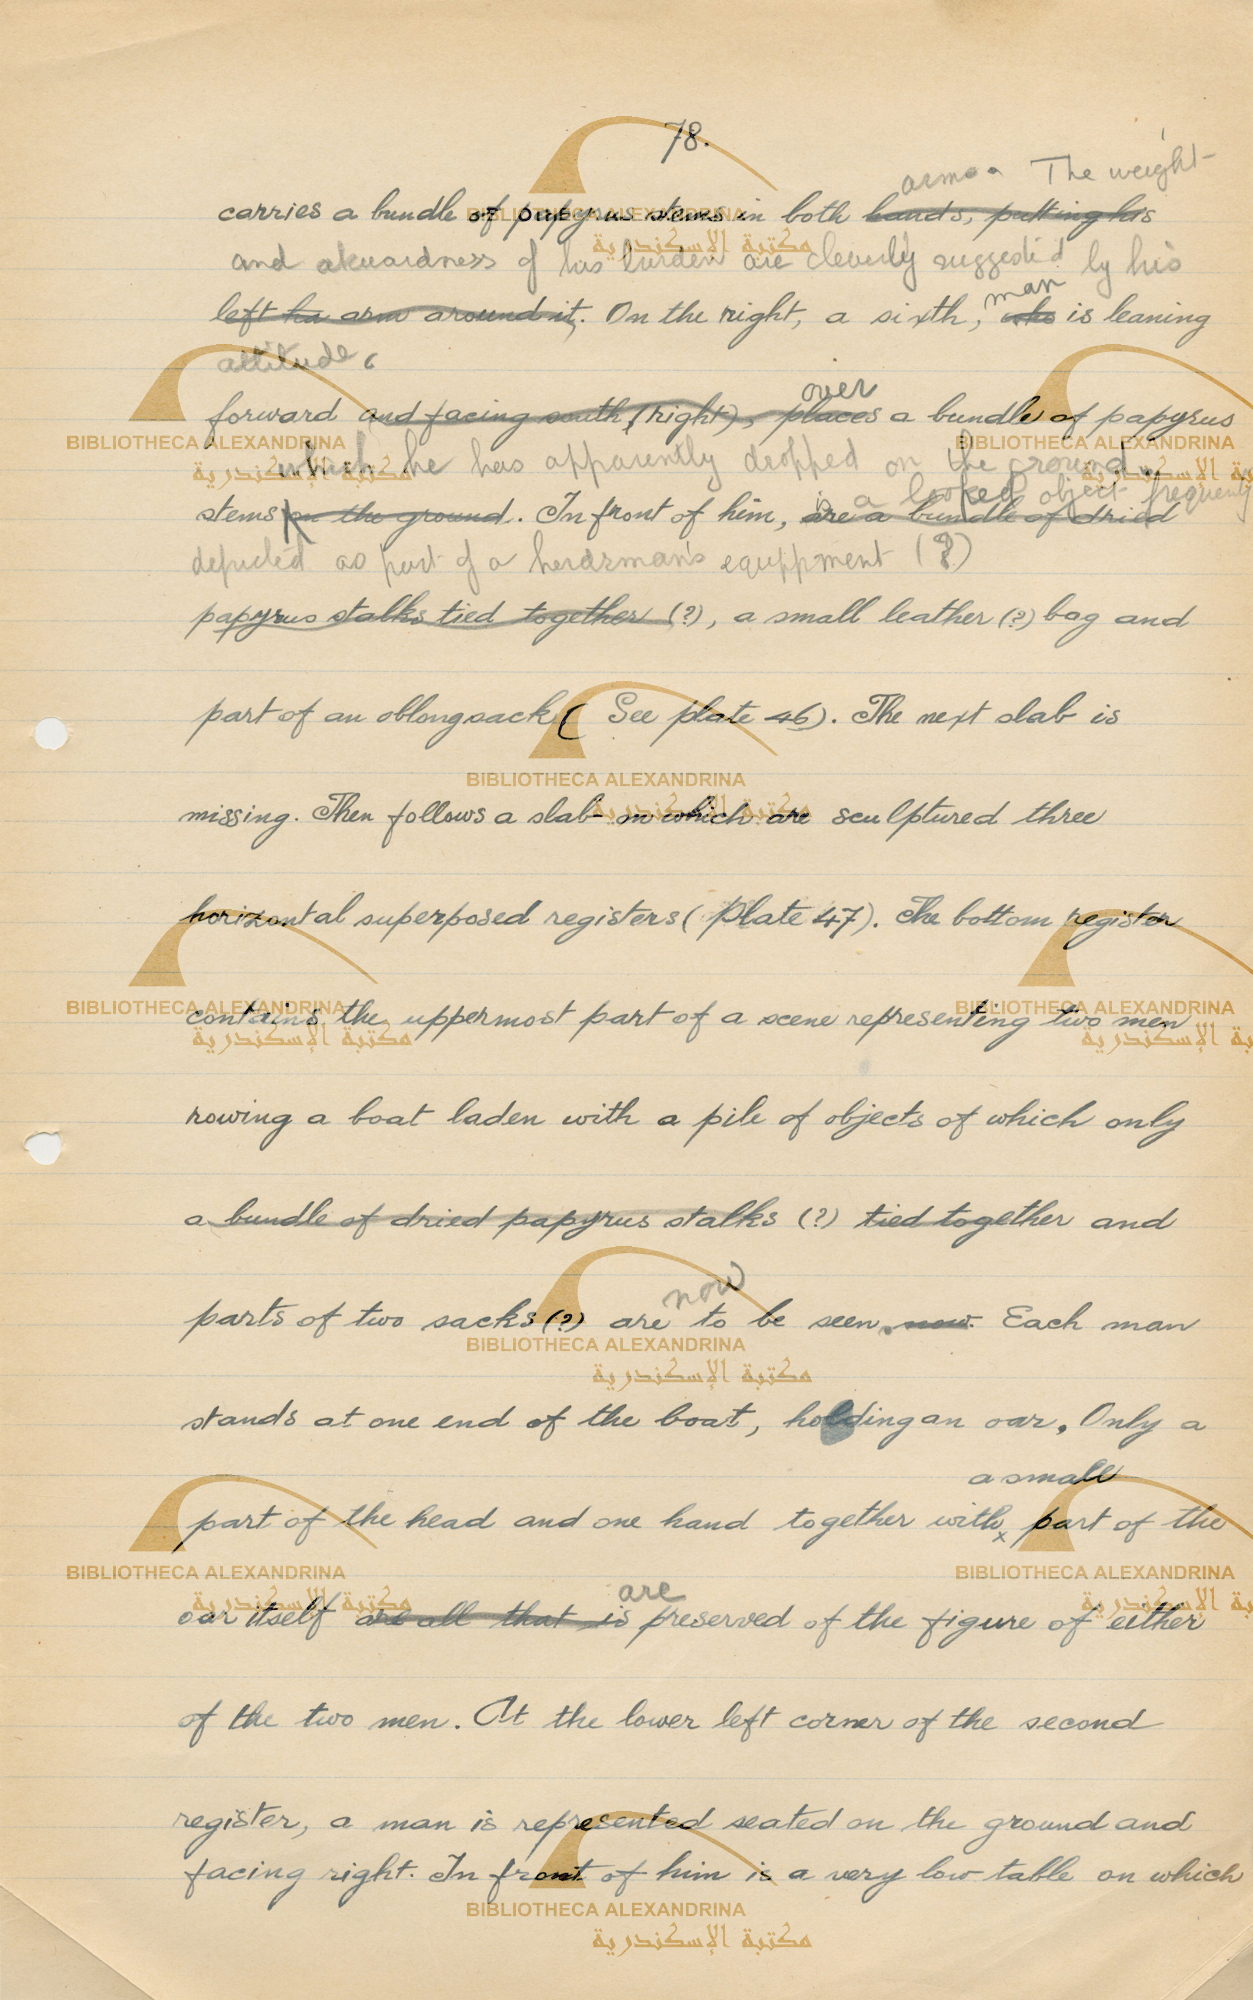 78.
arms. The weight
carries a bundle of papyrus stems in both hands, putting his
and akwardness of his burden are cleverly suggested by his
man
left ha arm around it. On the right, a sixth, who is leaning
attitude.
over
forward and facing south (right), places a bundle of papyrus
which he has apparently dropped on the ground
is a looped object frequently
stems on the ground. In front of him, are a bundle of dried
depicted as part of a herdsman's equippment (?)
papyrus stalks tied together (?), a small leather (?) bag and
part of an oblong sack ( See plate 46). The next slab is
missing. Then follows a slab on which are sculptured three
horizontal superposed registers ( Plate 47). The bottom register
contains the uppermost part of a scene representing two men
rowing a boat laden with a pile of objects of which only
a bundle of dried papyrus stalks (?) tied together and
now
parts of two sacks (?) are to be seen. now. Each man
stands at one end of the boat, holding an oar. Only a
a small
part of the head and one hand together with x part of the
are
oar itself are all that is preserved of the figure of either
of the two men. At the lower left corner of the second
register, a man is represented seated on the ground and
facing right. In front of him is a very low table on which
BIBLIOTHECA ALEXANDRINA
مكتبة الإسكندرية